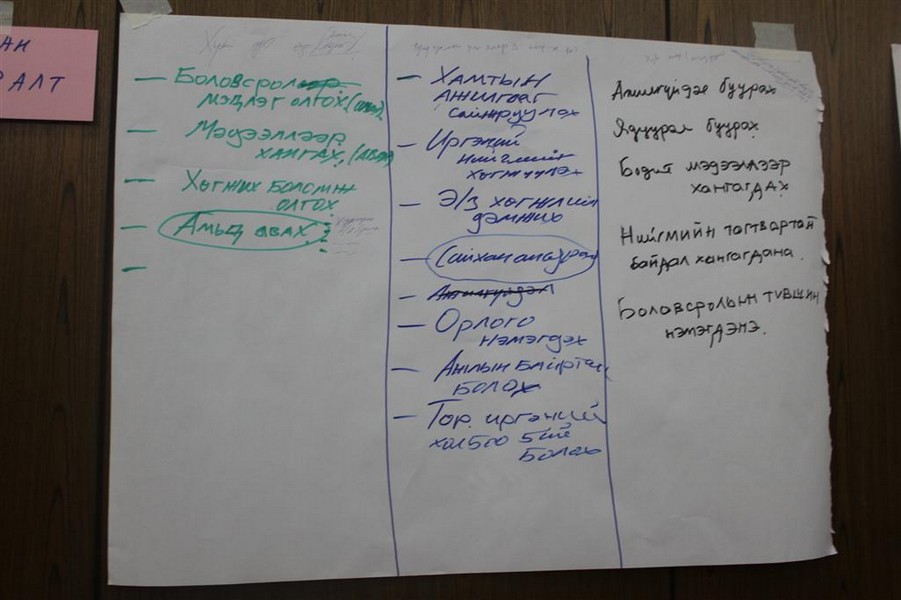 АН
РАЛТ
— Боловсрол
мэдлэг олгох (авах)
— Мэдээллээр
хангах, (авах)
— Хөгжих боломж
олгох
— Амьд авах
—
— Хамтын
ажилгааг
сайжруулах
— Иргэний
нийгмийн
хөгжүүлэх
— Э/з хөгжлийг
дэмжих
—
— Ажилгүйдэл
— Орлого
нэмэгдэх
— Ажлын байртай
болох
— Төр. иргэний
холбоо бий
болох
Ажилгүйдэл буурах
Ядуурал буурах
Бодит мэдээллээр
хангагдах
Нийгмийн тогтвортой
байдал хангагдана.
Боловсролын түвшин
нэмэгдэнэ.